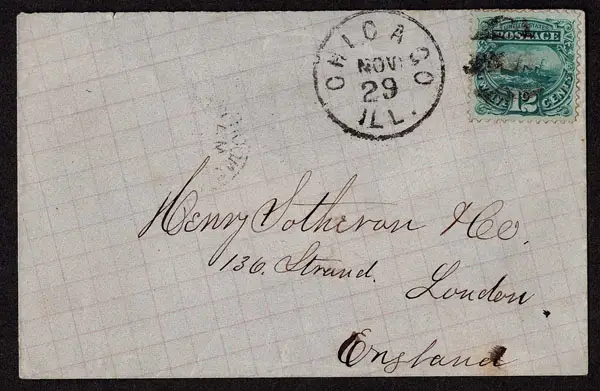 CHICAGO
NOV
29
ILL.
POSTAGE
12
CENTS
Henry Sotheran & Co.
136. Strand.
London
England